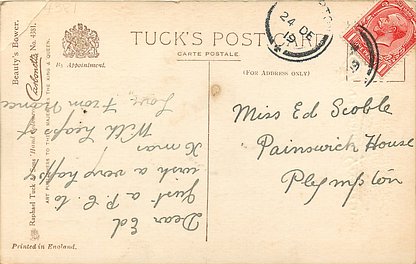 TUCK'S POSTCARD
CARTE POSTALE
(FOR ADDRESS ONLY)
By Appointment.
Beauty's Bower.
Carbonette No. 4381.
Raphael Tuck & Sons'
ART PUBLISHERS TO THEIR MAJESTIES THE KING & QUEEN.
Printed in England.
24 DE
19
Miss Ed Scoble
Painswick House
Plympton
Dear Ed
Just a P.C. to
wish a very happy
Xmas
With heaps of
Love, from